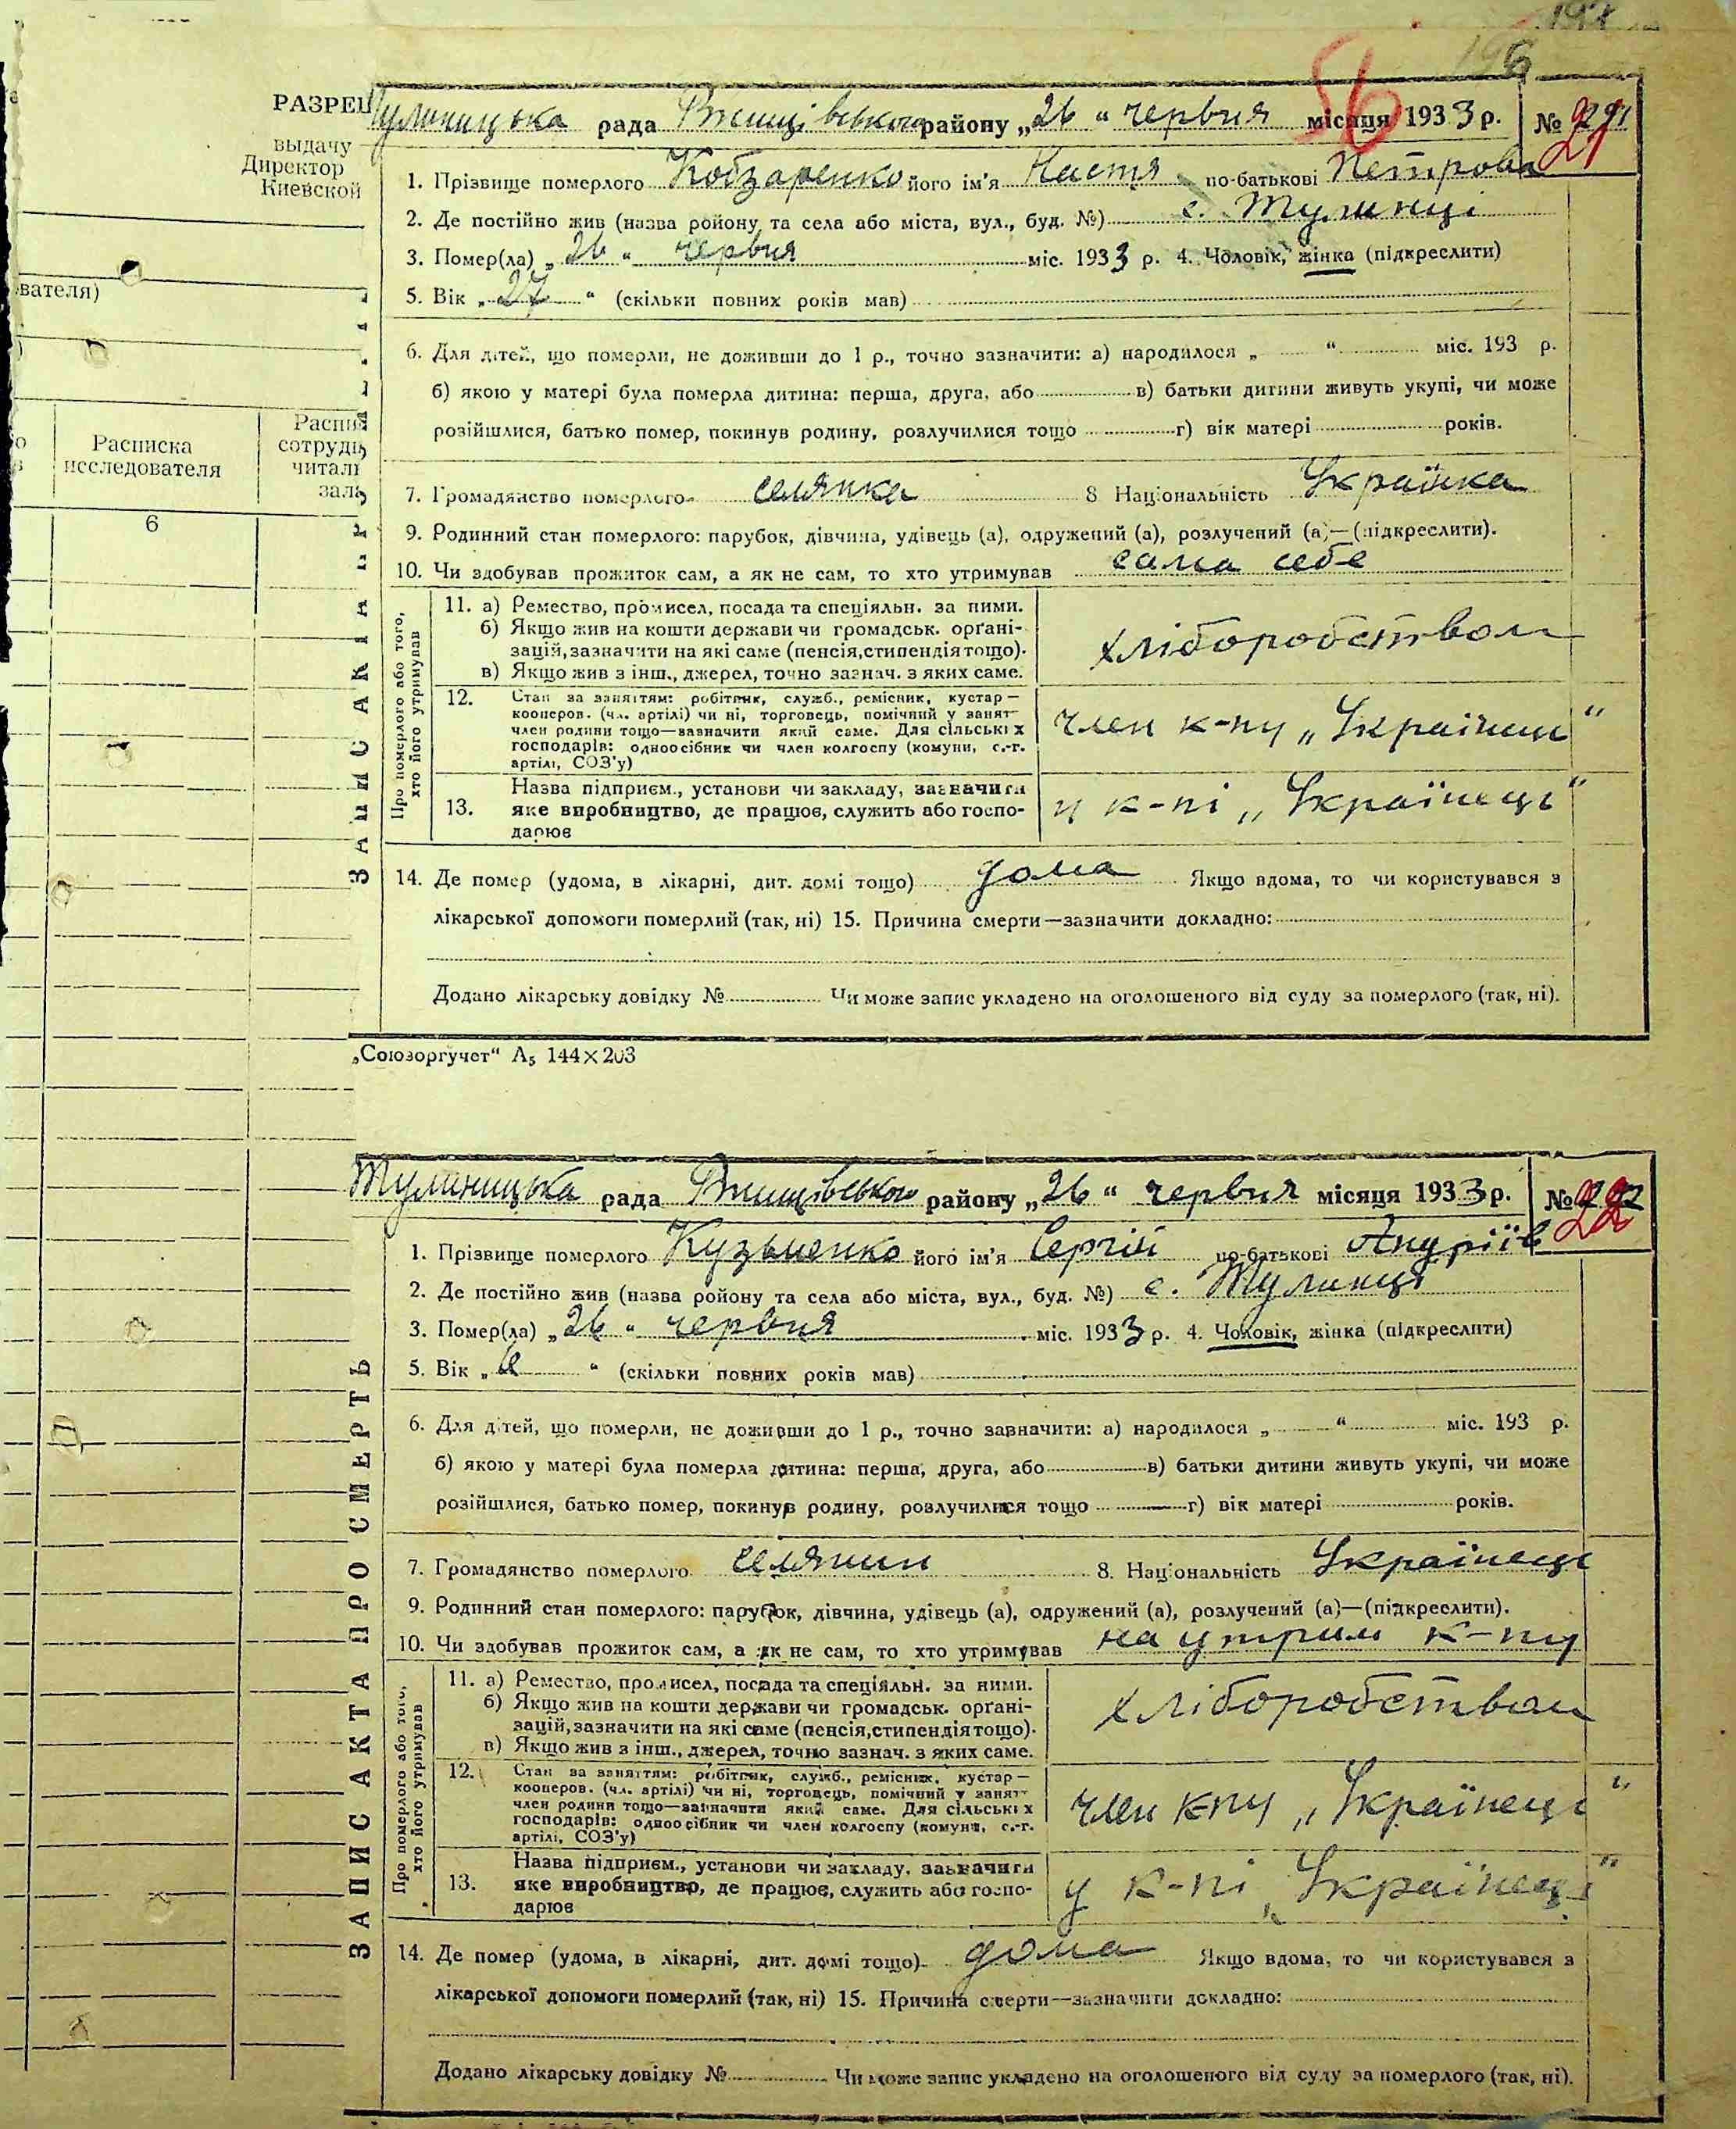 196
56
РАЗРЕШ
выдачу
Директор
Киевской
вателя)
Расписка
исследователя
Распис
сотрудн
читал
зала
6
Тулиницька рада Ржищівського району „26“ червня місяця 1933 р. № 21
1. Прізвище померлого Кобзаренко його ім'я Настя по-батькові Петрова
2. Де постійно жив (назва ройону та села або міста, вул., буд. №) с. Тулинці
3. Помер(ла) „26“ червня міс. 1933 р. 4. Чоловік, жінка (підкреслити)
5. Вік „27“ (скільки повних років мав)
6. Для дітей, що померли, не доживши до 1 р., точно зазначити: а) народилося „ “ міс. 193 р.
б) якою у матері була померла дитина: перша, друга, або в) батьки дитини живуть укупі, чи може
розійшлися, батько помер, покинув родину, розлучилися тощо г) вік матері років.
7. Громадянство померлого селянка 8 Національність Українка
9. Родинний стан померлого: парубок, дівчина, удівець (а), одружений (а), розлучений (а)—(підкреслити).
10. Чи здобував прожиток сам, а як не сам, то хто утримував сама себе
Про померлого або того,
хто його утримував
11. а) Ремество, промисел, посада та спеціяльн. за ними.
б) Якщо жив на кошти держави чи громадськ. орґані-
зацій, зазначити на які саме (пенсія, стипендія тощо).
в) Якщо жив з інш., джерел, точно зазнач. з яких саме.
хліборобством
12. Стан за заняттям: робітник, служб., ремісник, кустар—
кооперов. (чл. артілі) чи ні, торговець, помічний у занят
член родини тощо—зазначити який саме. Для сільських
господарів: одноосібник чи член колгоспу (комуни, с.-г.
артілі, СОЗ'у)
член к-пу „Українець“
13. Назва підприєм., установи чи закладу, зазначити
яке виробництво, де працює, служить або госпо-
дарює
у к-пі „Українець“
14. Де помер (удома, в лікарні, дит. домі тощо) дома Якщо вдома, то чи користувався з
лікарської допомоги померлий (так, ні) 15. Причина смерти—зазначити докладно:
Додано лікарську довідку № Чи може запис укладено на оголошеного від суду за померлого (так, ні).
„Союзоргучет“ А₅ 144×203
Тулиницька рада Ржищівського району „26“ червня місяця 1933 р. № 22
ЗАПИС АКТА ПРО СМЕРТЬ
1. Прізвище померлого Кузьменко його ім'я Сергій по-батькові Андріїв
2. Де постійно жив (назва ройону та села або міста, вул., буд. №) с. Тулинці
3. Помер(ла) „26“ червня міс. 1933 р. 4. Чоловік, жінка (підкреслити)
5. Вік „ “ (скільки повних років мав)
6. Для дітей, що померли, не доживши до 1 р., точно зазначити: а) народилося „ “ міс. 193 р.
б) якою у матері була померла дитина: перша, друга, або в) батьки дитини живуть укупі, чи може
розійшлися, батько помер, покинув родину, розлучилися тощо г) вік матері років.
7. Громадянство померлого селянин 8. Національність Українець
9. Родинний стан померлого: парубок, дівчина, удівець (а), одружений (а), розлучений (а)—(підкреслити).
10. Чи здобував прожиток сам, а як не сам, то хто утримував на утрим к-пу
Про померлого або того,
хто його утримував
11. а) Ремество, промисел, посада та спеціяльн. за ними.
б) Якщо жив на кошти держави чи громадськ. орґані-
зацій, зазначити на які саме (пенсія, стипендія тощо).
в) Якщо жив з інш., джерел, точно зазнач. з яких саме.
хліборобством
12. Стан за заняттям: робітник, служб., ремісник, кустар—
кооперов. (чл. артілі) чи ні, торговець, помічний у занят
член родини тощо—зазначити який саме. Для сільських
господарів: одноосібник чи член колгоспу (комуни, с.-г.
артілі, СОЗ'у)
член к-пу „Українець“
13. Назва підприєм., установи чи закладу, зазначити
яке виробництво, де працює, служить або госпо-
дарює
у к-пі „Українець“
14. Де помер (удома, в лікарні, дит. домі тощо) дома Якщо вдома, то чи користувався з
лікарської допомоги померлий (так, ні) 15. Причина смерти—зазначити докладно:
Додано лікарську довідку № Чи може запис укладено на оголошеного від суду за померлого (так, ні).